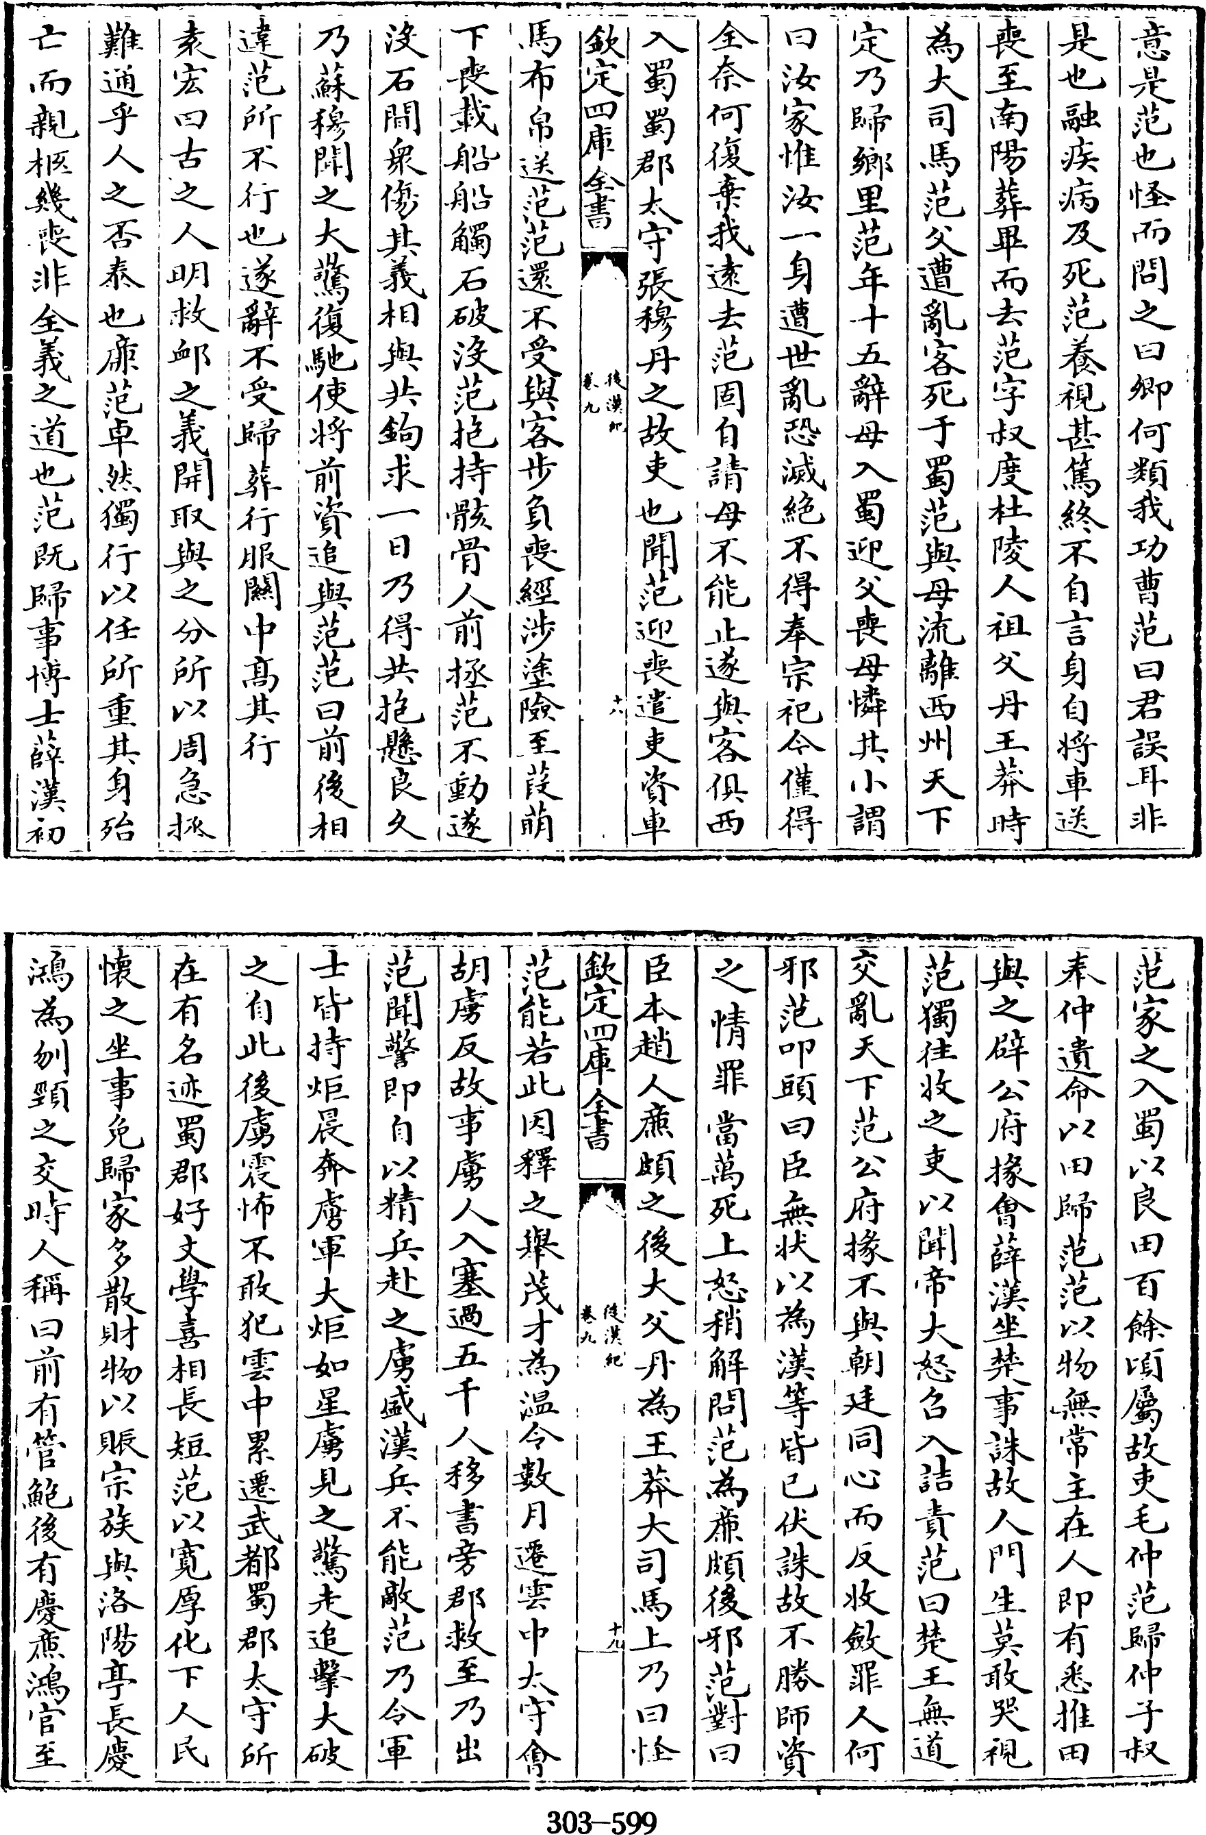 意是范也怪而問之曰卿何類我功曹范曰君誤耳非
是也融疾病及死范養視甚篤終不自言身自將車送
喪至南陽葬畢而去范字叔度杜陵人祖父丹王莽時
為大司馬范父遭亂客死于蜀范與母流離西州天下
定乃歸鄉里范年十五辭母入蜀迎父喪母憐其小謂
曰汝家惟汝一身遭世亂恐滅絕不得奉宗祀今僅得
全奈何復棄我遠去范固自請母不能止遂與客俱西
入蜀蜀郡太守張穆丹之故吏也聞范迎喪遣吏資車
欽定四庫全書
後漢紀
卷九
十八
馬布帛送范范還不受與客步負喪經涉塗險至葭萌
下喪載船船觸石破沒范抱持骸骨人前拯范不動遂
沒石間衆傷其義相與共鉤求一日乃得共抱懸良久
乃蘇穆聞之大驚復馳使將前資追與范范曰前後相
違范所不行也遂辭不受歸葬行服闕中髙其行
袁宏曰古之人明救卹之義開取與之分所以周急拯
難通乎人之否泰也亷范卓然獨行以任所重其身殆
亡而親柩幾喪非全義之道也范既歸事博士薛漢初
范家之入蜀以良田百餘頃屬故吏毛仲范歸仲子叔
奉仲遺命以田歸范范以物無常主在人即有悉推田
與之辟公府掾會薛漢坐楚事誅故人門生莫敢哭視
范獨往收之吏以聞帝大怒召入詰責范曰楚王無道
交亂天下范公府掾不與朝廷同心而反收斂罪人何
邪范叩頭曰臣無狀以為漢等皆已伏誅故不勝師資
之情罪當萬死上怒稍解問范為亷頗後邪范對曰
臣本趙人亷頗之後大父丹為王莽大司馬上乃曰怪
欽定四庫全書
後漢紀
卷九
十九
范能若此因釋之舉茂才為温令數月遷雲中太守會
胡虜反故事虜人入塞過五千人移書旁郡救至乃出
范聞警即自以精兵赴之虜盛漢兵不能敵范乃令軍
士皆持炬晨奔虜軍大炬如星虜見之驚走追擊大破
之自此後虜震怖不敢犯雲中累遷武都蜀郡太守所
在有名迹蜀郡好文學喜相長短范以寛厚化下人民
懷之坐事免歸家多散財物以賑宗族與洛陽亭長慶
鴻為刎頸之交時人稱曰前有管鮑後有慶亷鴻官至
303-599